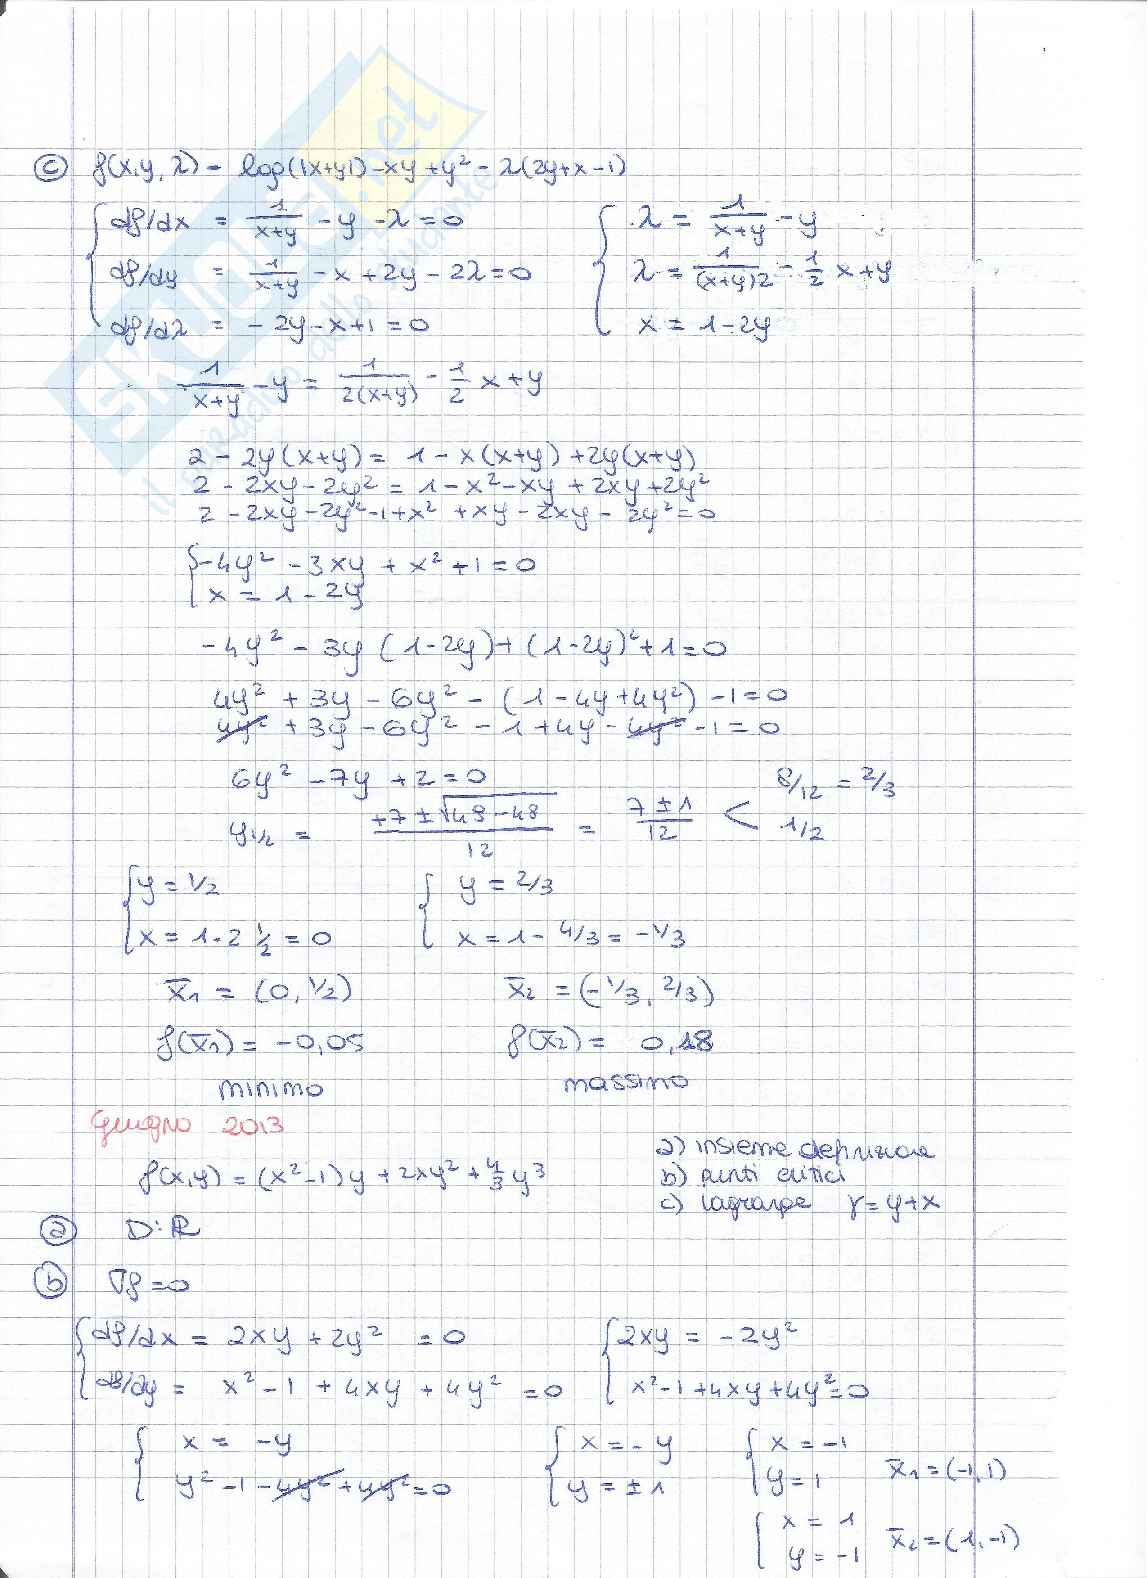 ⓒ f(x,y,λ) = log(|x+y|) - xy + y² - λ(2y+x-1)
{ df/dx = 1/(x+y) - y - λ = 0 { λ = 1/(x+y) - y
df/dy = 1/(x+y) - x + 2y - 2λ = 0 λ = 1/((x+y)2) - 1/2 x + y
df/dλ = - 2y - x + 1 = 0 x = 1 - 2y
1/(x+y) - y = 1/(2(x+y)) - 1/2 x + y
2 - 2y(x+y) = 1 - x(x+y) + 2y(x+y)
2 - 2xy - 2y² = 1 - x² - xy + 2xy + 2y²
2 - 2xy - 2y² - 1 + x² + xy - 2xy - 2y² = 0
{ -4y² - 3xy + x² + 1 = 0
x = 1 - 2y
-4y² - 3y (1-2y) + (1-2y)² + 1 = 0
4y² + 3y - 6y² - (1 - 4y + 4y²) - 1 = 0
4y² + 3y - 6y² - 1 + 4y - 4y² - 1 = 0
6y² - 7y + 2 = 0
y1/2 = (+7 ± √(49-48))/12 = (7 ± 1)/12 < 8/12 = 2/3
1/2
{ y = 1/2 { y = 2/3
x = 1 - 2 1/2 = 0 x = 1 - 4/3 = -1/3
x̄₁ = (0, 1/2) x̄₂ = (-1/3, 2/3)
f(x̄₁) = -0,05 f(x̄₂) = 0,18
minimo massimo
Giugno 2013
f(x,y) = (x²-1)y + 2xy² + 4/3 y³
a) insieme definizione
b) punti critici
c) lagrange γ = y+x
ⓐ D: ℝ
ⓑ ∇f = 0
{ df/dx = 2xy + 2y² = 0 { 2xy = -2y²
df/dy = x² - 1 + 4xy + 4y² = 0 x² - 1 + 4xy + 4y² = 0
{ x = -y { x = -y { x = -1
y² - 1 - 4y² + 4y² = 0 y = ±1 y = 1 x̄₁ = (-1,1)
{ x = 1
y = -1 x̄₂ = (1,-1)
SKUOLA.net
il paradiso dello studente